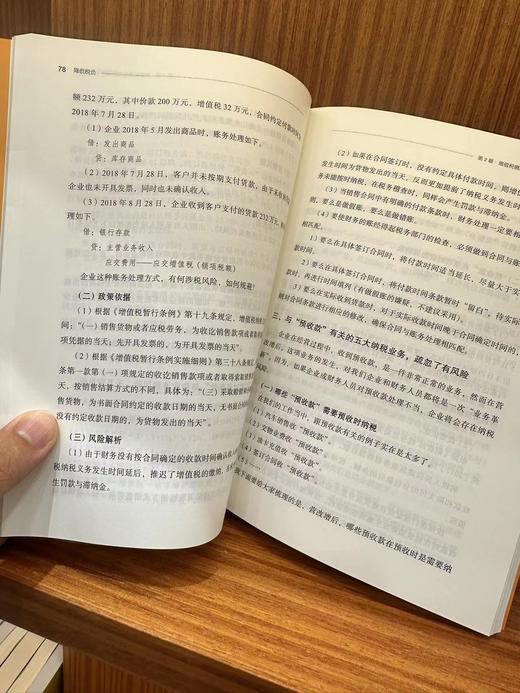 78 降低税负
额 232 万元，其中价款 200 万元，增值税 32 万元，合同约定付款时间为
2018 年 7 月 28 日。
（1）企业 2018 年 5 月发出商品时，账务处理如下。
借：发出商品
贷：库存商品
（2）2018 年 7 月 28 日，客户并未按期支付货款，由于未收到
企业也未开具发票，同时也未确认收入。
（3）2018 年 8 月 28 日，企业收到客户支付的货款 232 万元，账
处理如下。
借：银行存款
贷：主营业务收入
应交费用——应交增值税（销项税额）
企业这种账务处理方式，有何涉税风险，如何规避？
（二）政策依据
（1）根据《增值税暂行条例》第十九条规定，增值税
间：“（一）销售货物或者应税劳务，为收讫销售款项或者取
项凭据的当天；先开具发票的，为开具发票的当天”。
（2）根据《增值税暂行条例实施细则》第三十八条规定
条第一款第（一）项规定的收讫销售款项或者取得索取销售
天，按销售结算方式的不同，具体为：“（三）采取赊销
售货物，为书面合同约定的收款日期的当天，无书面合
没有约定收款日期的，为货物发出的当天”。
（三）风险解析
（1）由于财务没有按合同确定的收款时间确认收入
税纳税义务发生时间延后，推迟了增值税的缴纳，
生罚款与滞纳金。
第 2 章
（2）如果在合同签订时，没有约定具体付款时间，则增值
发生时间为货物发出的当天，反而更加提前了纳税义务发生时
务未能按时纳税，在税务稽查时，同样会产生罚款与滞纳金。
（3）当销售合同中有明确的付款条款时，财务处理一定要按
则，要么是做假账，要么是做错账。
（4）要使财务的账经得起税务部门的检查，必须做到合同与账
相匹配。
1）要么在具体签订合同时，将付款时间适当延长，尽量大于实
款时间。
2）要么在具体签订合同时，将付款时间条款暂时“留白”，待实际
款时，再进行时间填列（有做假账的嫌疑，不建议采用）。
3）要么在实际收到货款时，对于实际收款时间晚于合同确定时间的，
须对合同条款进行相应的修改，确保合同与账务处理相匹配。
三、与“预收款”有关的五大纳税业务，疏忽了有风险
企业在经营过程中，收到预收款，是一件非常正常的业务，然而在营
改增后，这项业务的发生，对我们企业和财务人员都将是一次“业务革
命”，因为，如果企业或财务人员对预收款处理不当，企业将会存在纳税
风险。
（一）哪些“预收款”需要预收时纳税
在我们的工作当中，跟预收款有关的例子实在是太多了。
（1）汽车销售收“预收款”。
（2）交物业费收“预收款”。
（3）油卡充值收“预收款”。
（4）签订合同收“预收款”。
（5）……
下面要给大家梳理的是，营改增后，哪些预收款在预收时是需要纳